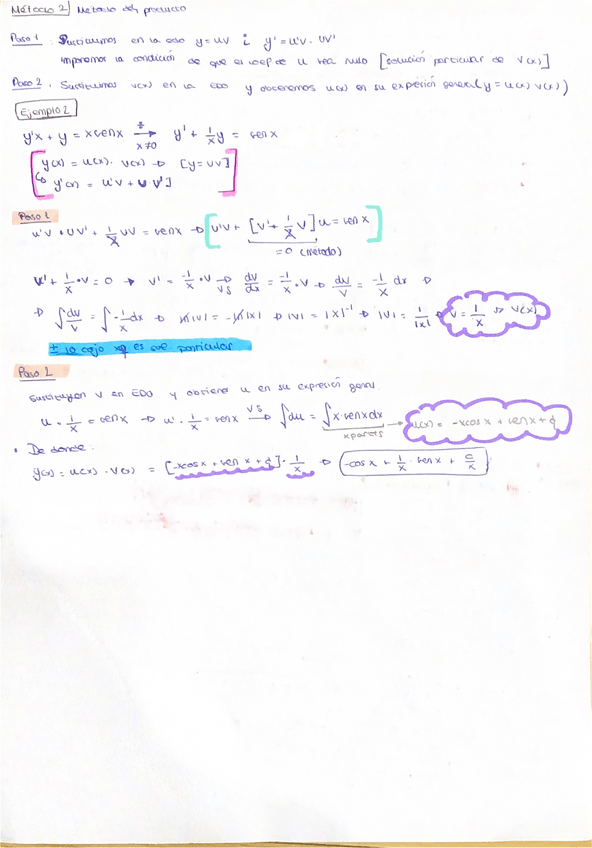 Método 2 | Metodo del producto
Paso 1: Sustituimos en la edo y=uv i y'=u'v · uv'
imponemos la condición de que el coef de u sea nulo [solución particular de v(x)]
Paso 2. Sustituimos v(x) en la EDO y obtenemos u(x) en su expresión general (y = u(x) v(x))
Ejemplo 2
y'x + y = x senx → x≠0 y' + 1/x y = sen x
[y(x) = u(x) · v(x) → [y=uv]
↳ y'(x) = u'v + u v']
Paso 1
u'v + uv' + 1/x uv = senx → [u'v + [v' + 1/x v] u = sen x]
=0 (método)
v' + 1/x · v = 0 → v' = -1/x · v → VS dv/dx = -1/x · v → dv/v = -1/x dx →
→ ∫ dv/v = ∫ -1/x dx → ln|v| = -ln|x| → |v| = |x|⁻¹ → |v| = 1/|x| → v = 1/x → v(x)
± lo cojo xq es sol particular
Paso 2
sustituyen v en EDO y obtiene u en su expresión genral
u · 1/x = senx → u' · 1/x = senx VS → ∫du = ∫x · senx dx → u(x) = -xcosx + senx + c
x partes
• De donde:
y(x) = u(x) · v(x) = [-xcosx + sen x + c] · 1/x → -cosx + 1/x · sen x + c/x